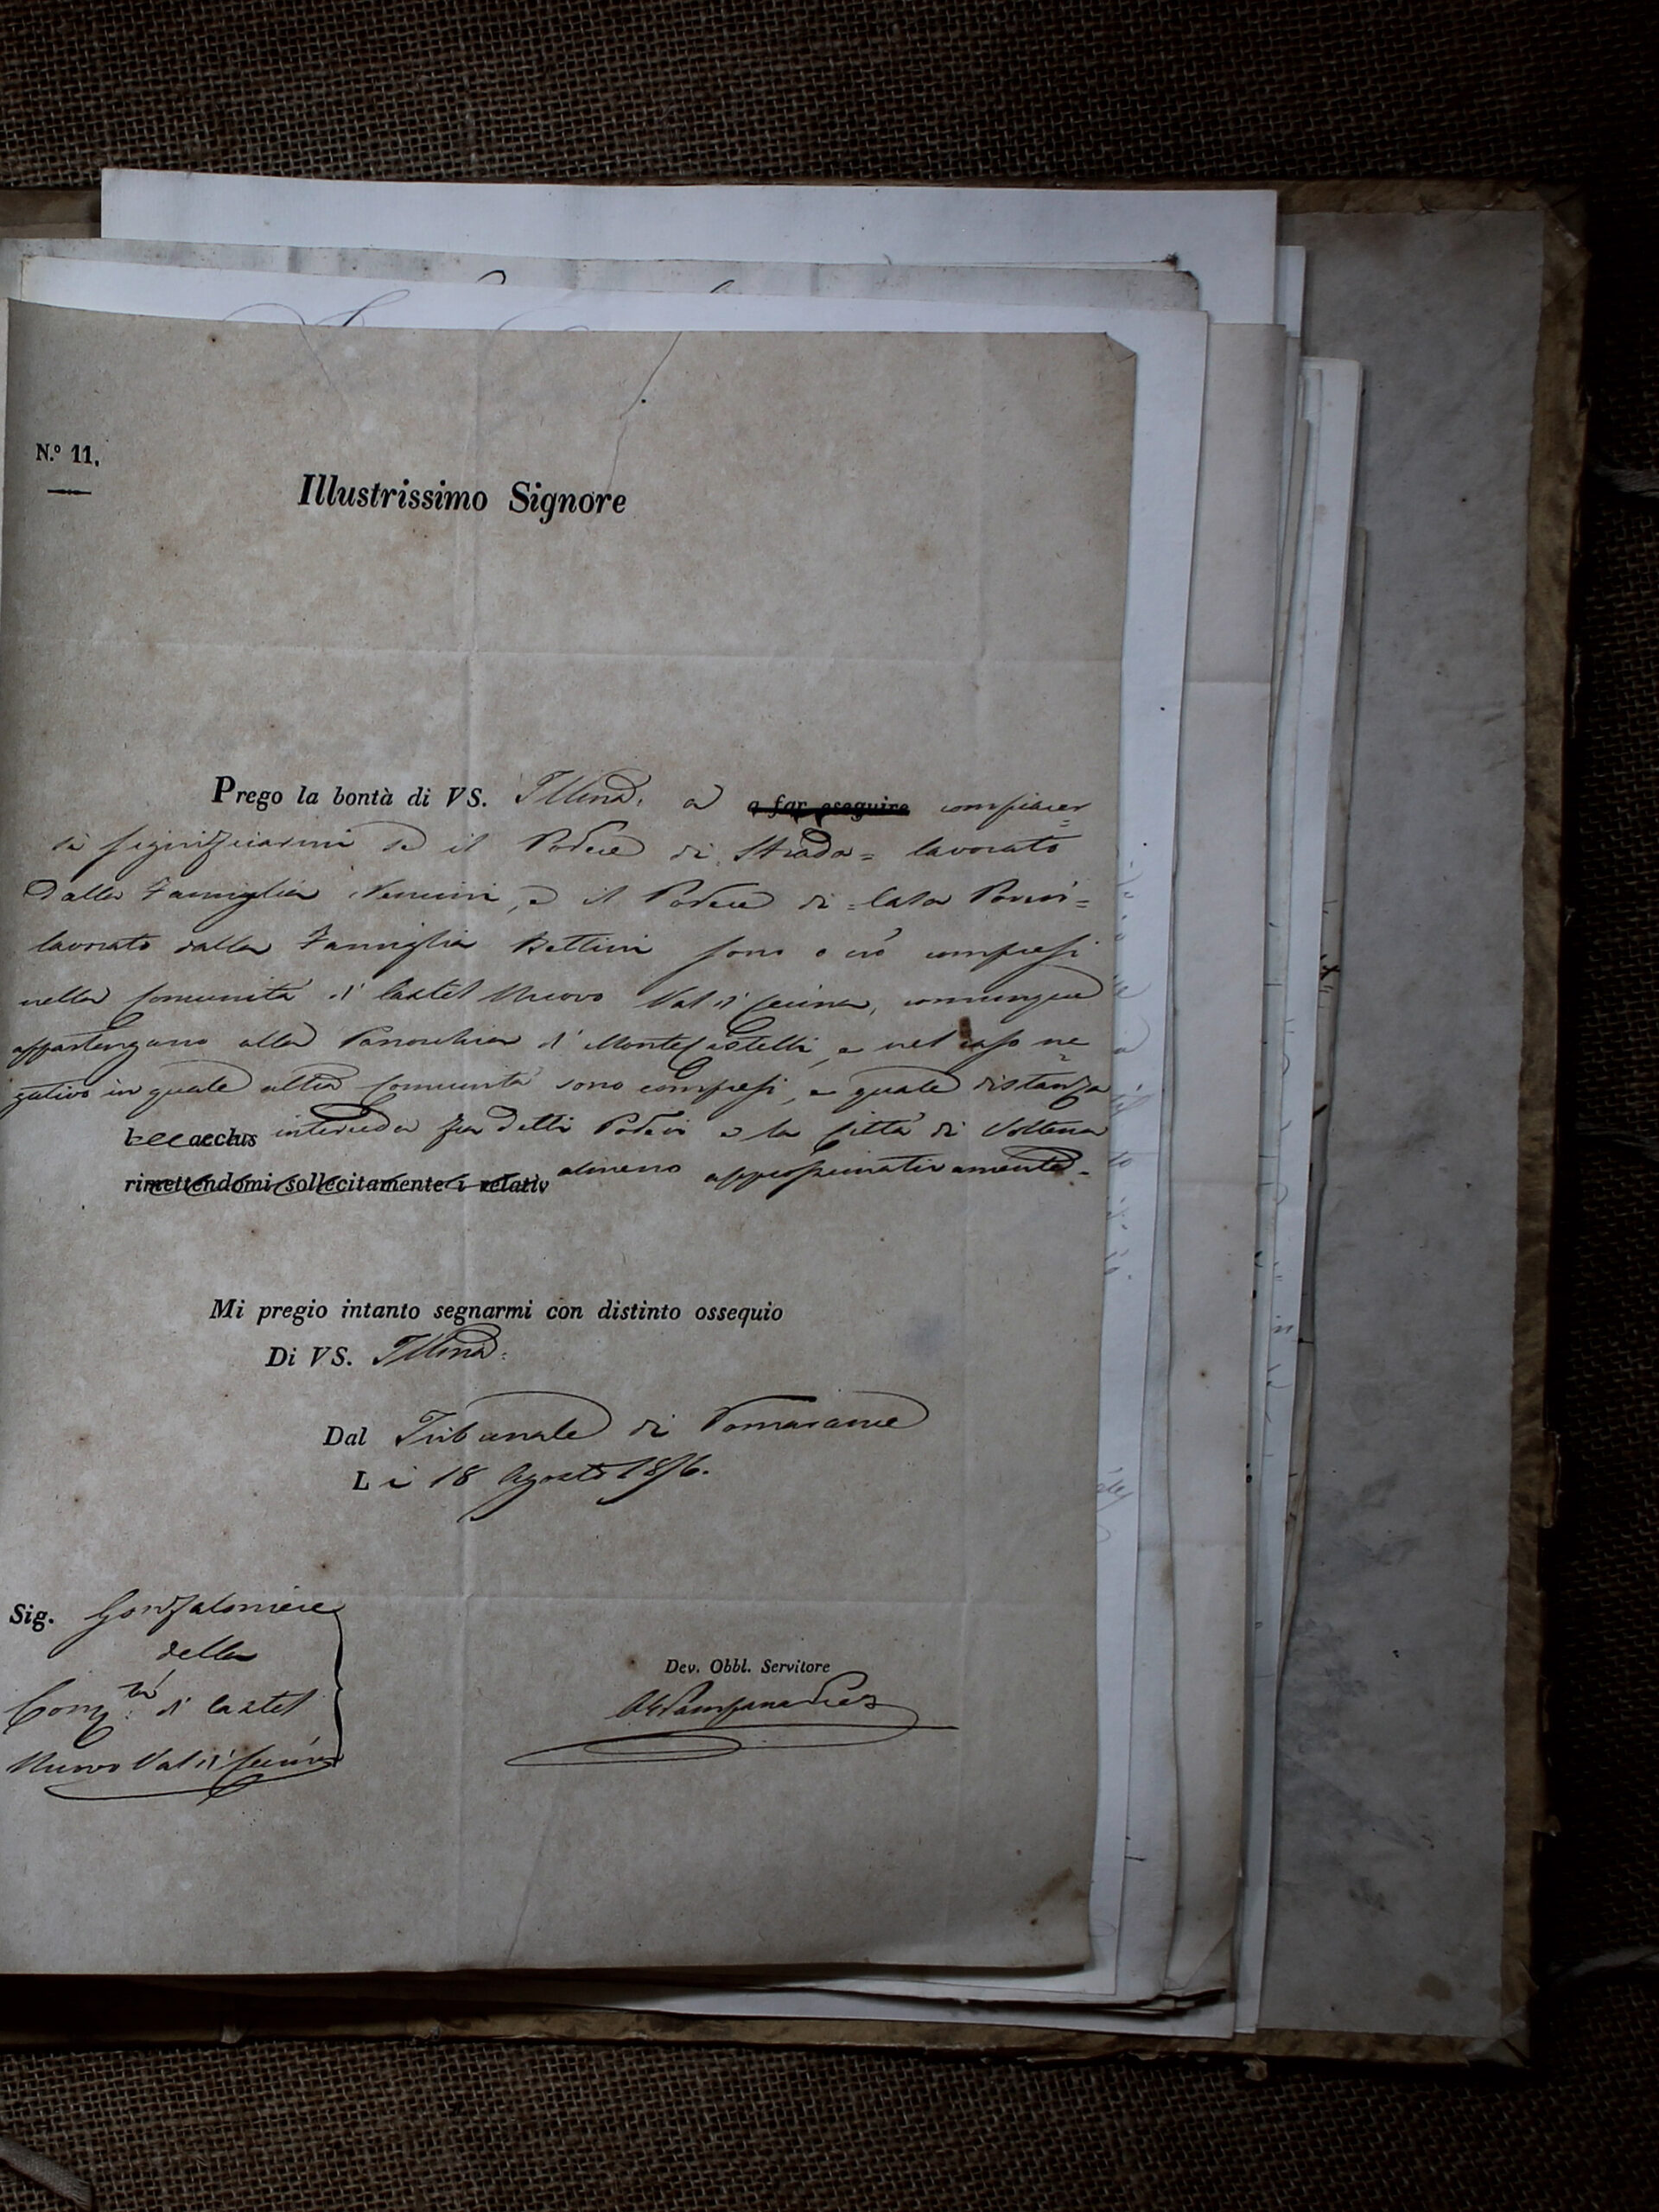 N.º 11.
Illustrissimo Signore
Prego la bontà di VS. Illma. a a far eseguire compiacer=
si significarmi se il Podere di Strada= lavorato
dalla Famiglia Nencini, e il Podere di =Casa
lavorato dalla Famiglia Bettini sono o nò compresi
nella Comunità di Castel Nuovo Val di Cecina, comunque
appartengano alla Parrochia di MonteCastelli, e nel caso ne=
gativo in quale altra Comunità sono compresi, e quale distanza
interceda fra detti Poderi e la Città di Volterra
rimettendomi sollecitamente i relativ almeno approssimativamente.
Mi pregio intanto segnarmi con distinto ossequio
Di VS. Illma:
Dal Tribunale di Pomarance
Li 18 Agosto 1856.
Sig. Gonfaloniere
della
Comtà: di Castel
Nuovo Val di Cecina
Dev. Obbl. Servitore